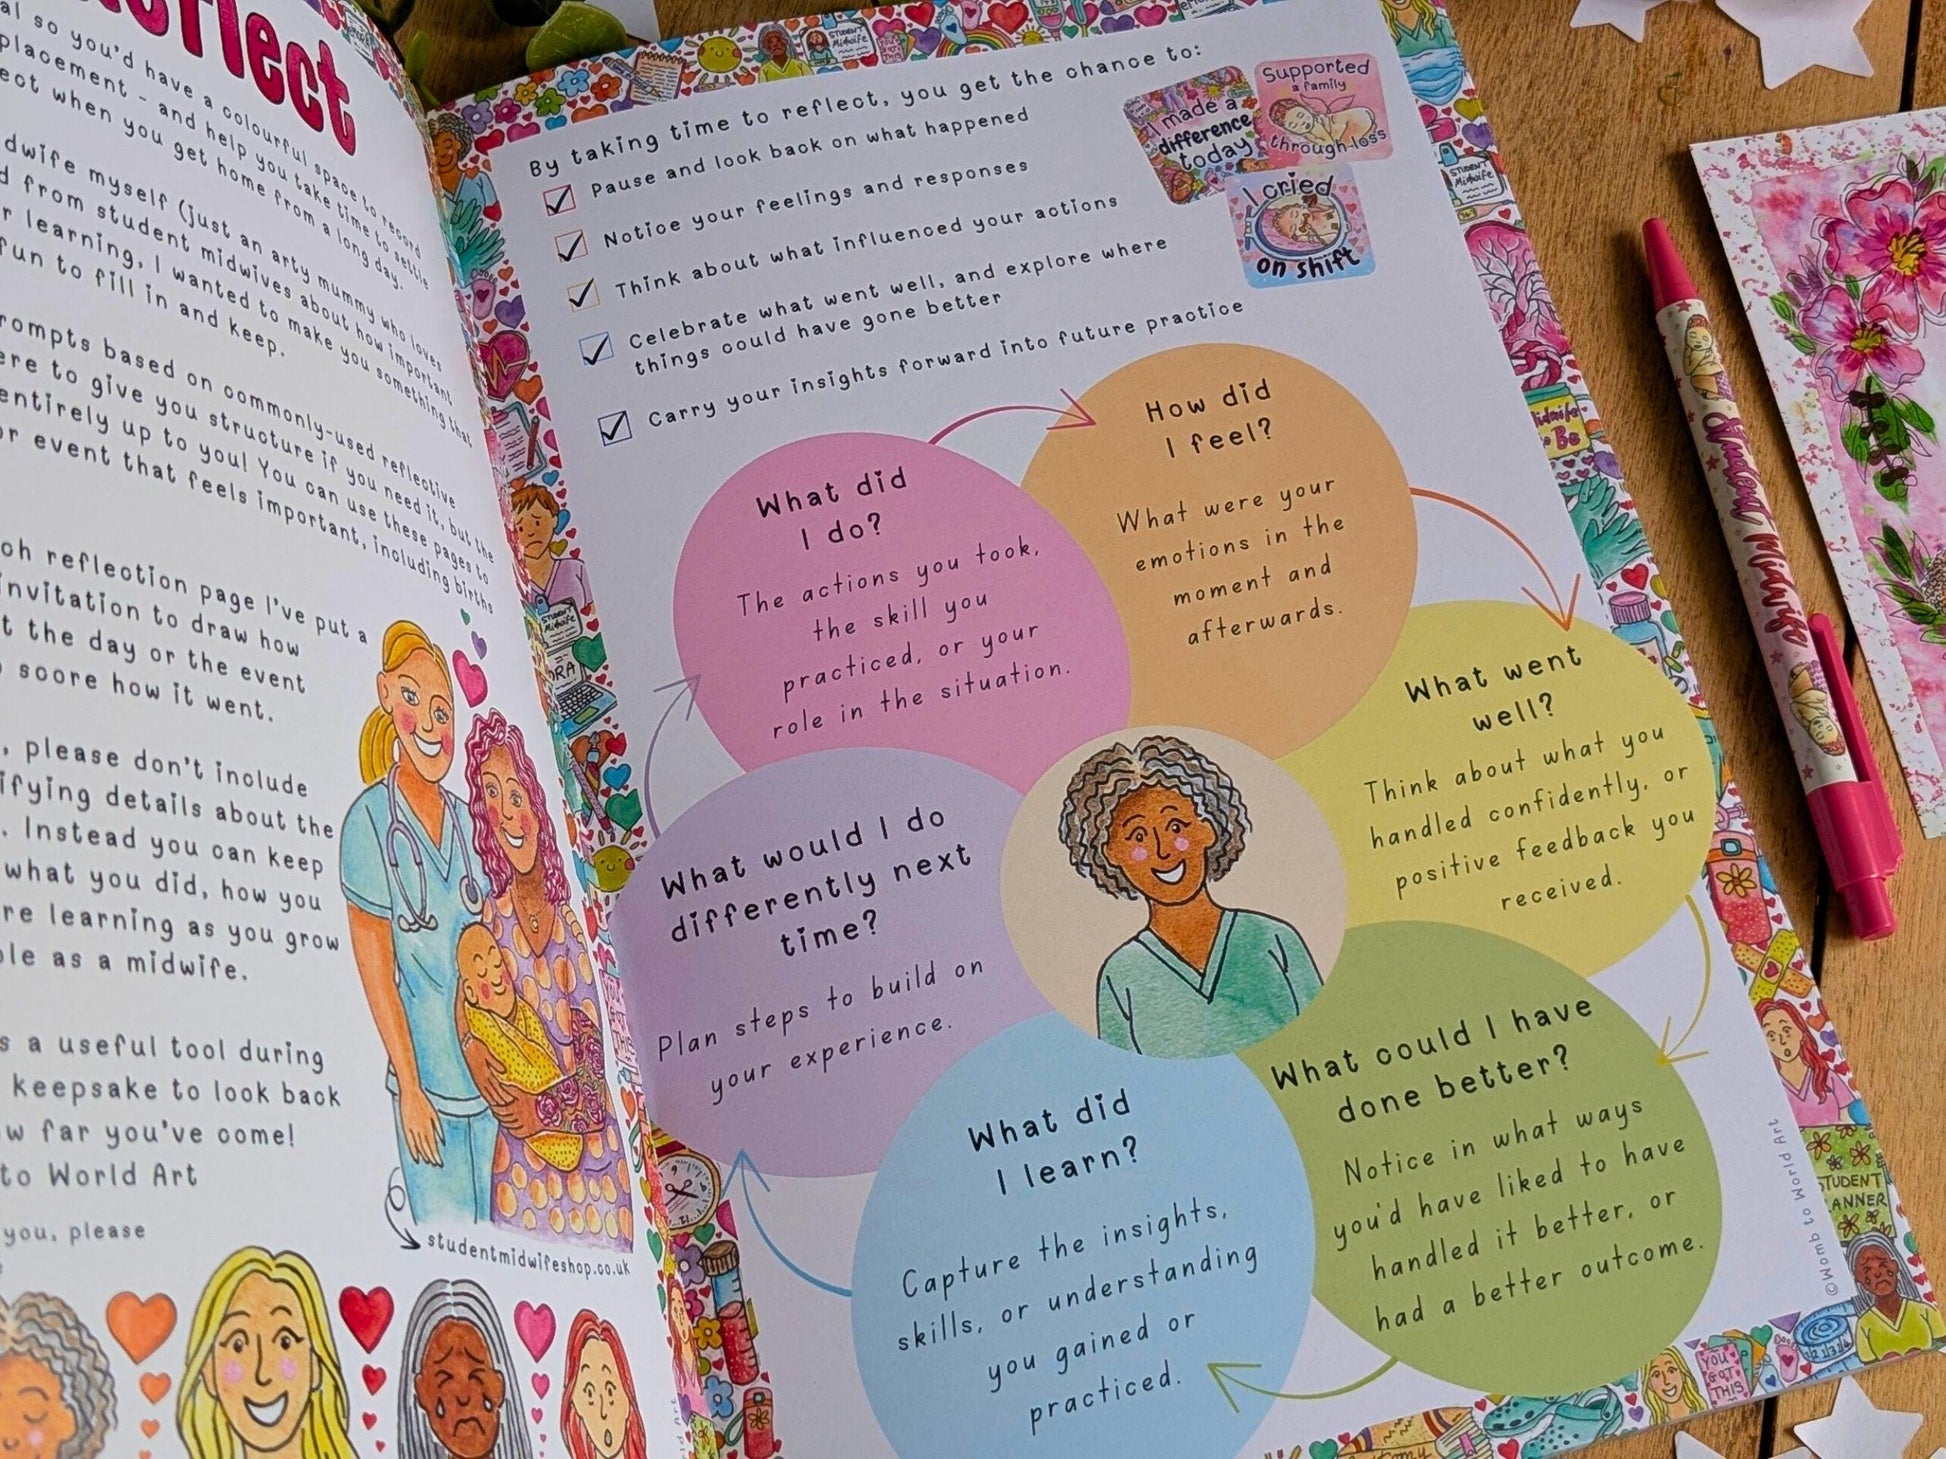 reflect
al so you'd have a colourful space to record
placement - and help you take time to settle
ect when you get home from a long day.
dwife myself (just an arty mummy who loves
d from student midwives about how important
r learning, I wanted to make you something that
fun to fill in and keep.
rompts based on commonly-used reflective
ere to give you structure if you need it, but the
entirely up to you! You can use these pages to
or event that feels important, including births
ch reflection page I've put a
invitation to draw how
t the day or the event
o score how it went.
, please don't include
ifying details about the
. Instead you can keep
what you did, how you
re learning as you grow
ole as a midwife.
s a useful tool during
keepsake to look back
w far you've come!
to World Art
you, please
studentmidwifeshop.co.uk
By taking time to reflect, you get the chance to:
Pause and look back on what happened
Notice your feelings and responses
Think about what influenced your actions
Celebrate what went well, and explore where
things could have gone better
Carry your insights forward into future practice
I made a
difference
today
Supported
a family
through loss
I cried
on shift
What did
I do?
The actions you took,
the skill you
practiced, or your
role in the situation.
How did
I feel?
What were your
emotions in the
moment and
afterwards.
What went
well?
Think about what you
handled confidently, or
positive feedback you
received.
What could I have
done better?
Notice in what ways
you'd have liked to have
handled it better, or
had a better outcome.
What did
I learn?
Capture the insights,
skills, or understanding
you gained or
practiced.
What would I do
differently next
time?
Plan steps to build on
your experience.
©Womb to World Art
STUDENT
Midwife
STUDENT
Midwife
Midwife-
to Be
STUDENT
Midwife
STUDENT
PLANNER
YOU
GOT
THIS
Student Midwife